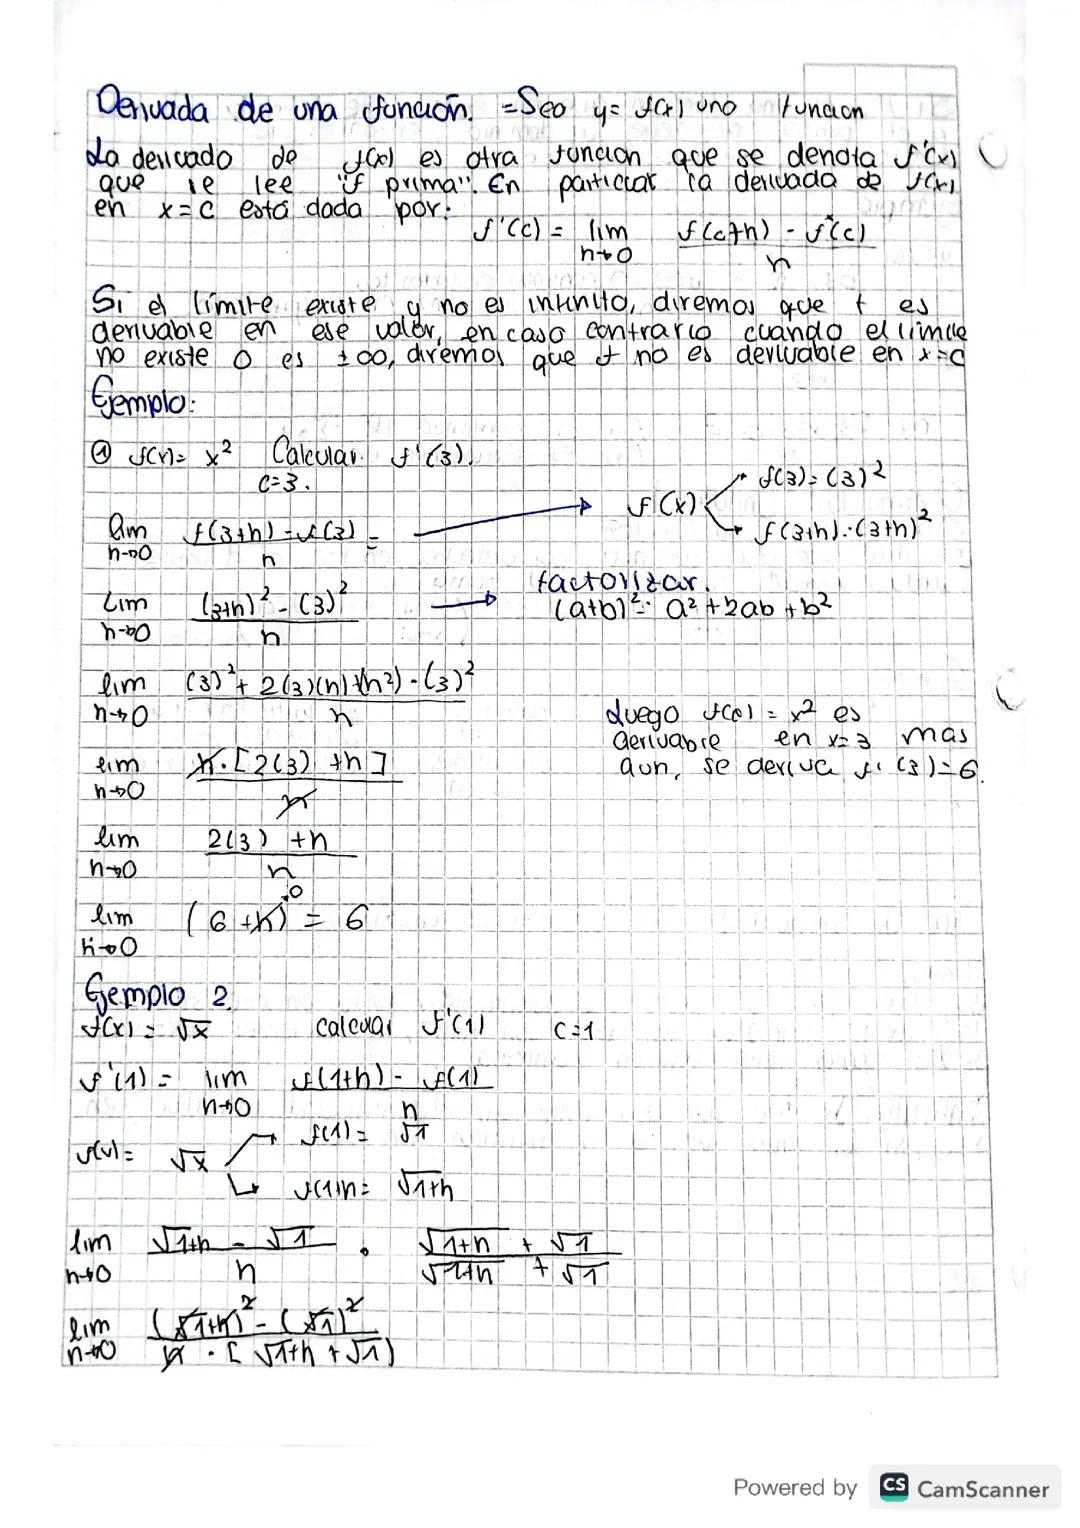 Derivada de una función. =Sea y= f(x) una funcion
La derivada de f(x) es otra funcion que se denota f'(x)
que se lee "f prima". En particular la derivada de f(x)
en x=c está dada por:
f'(c) = lim f(c+h) - f(c)
h→0 h
Si el límite existe y no es infinito, diremos que f es
derivable en ese valor, en caso contrario cuando el limite
no existe o es ±∞, diremos que f no es derivable en x=c
Ejemplo:
① f(x)= x² Calcular f'(3).
c=3.
f(x) f(3)=(3)²
f(3+h)=(3+h)²
lim f(3+h)-f(3) =
h→0 h
factorizar.
Lim (3+h)²-(3)² (a+b)²= a²+2ab+b²
h→0 h
lim (3)²+2(3)(h)+(h²)-(3)²
h→0 h
Luego f(x) = x² es
derivable en x=3 mas
aun, se deriva f'(3)=6.
lim h·[2(3)+h]
h→0 h
lim 2(3)+h
h→0 h
lim (6+h)→0 = 6
h→0
Ejemplo 2
f(x) = √x calcular f'(1) c=1
f'(1) = lim f(1+h) - f(1)
h→0 h
f(x)= √x f(1)= √1
f(1+h= √1+h
lim √1+h - √1 · √1+h + √1
h→0 h √1+h + √1
lim (√1+h)² - (√1)²
h→0 h · [√1+h + √1)
Powered by CS CamScanner